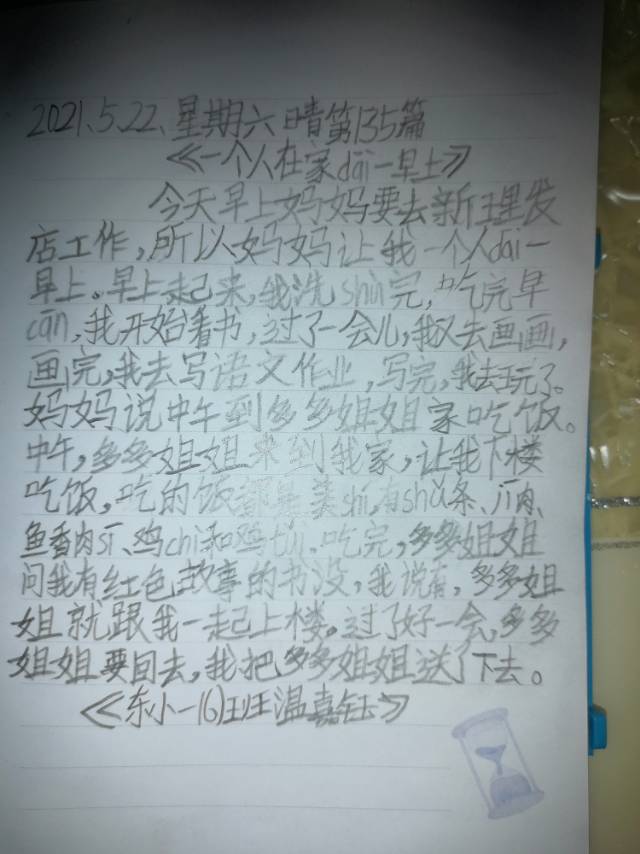 2021.5.22.星期六 晴第135篇
《一个人在家dāi一早上》
今天早上妈妈要去新理发
店工作，所以妈妈让我一个人dāi一
早上。早上起来，我洗shù完，吃完早
cān，我开始看书，过了一会儿，我又去画画，
画完，我去写语文作业，写完，我去玩了。
妈妈说中午到多多姐姐家吃饭。
中午，多多姐姐来到我家，让我下楼
吃饭，吃的饭都是美shí，有shǔ条、肉、
鱼香肉sī、鸡chì和鸡tuǐ，吃完，多多姐姐
问我有红色故事的书没，我说有，多多姐
姐就跟我一起上楼。过了好一会，多多
姐姐要回去，我把多多姐姐送了下去。
《东小一(6)班温嘉钰》